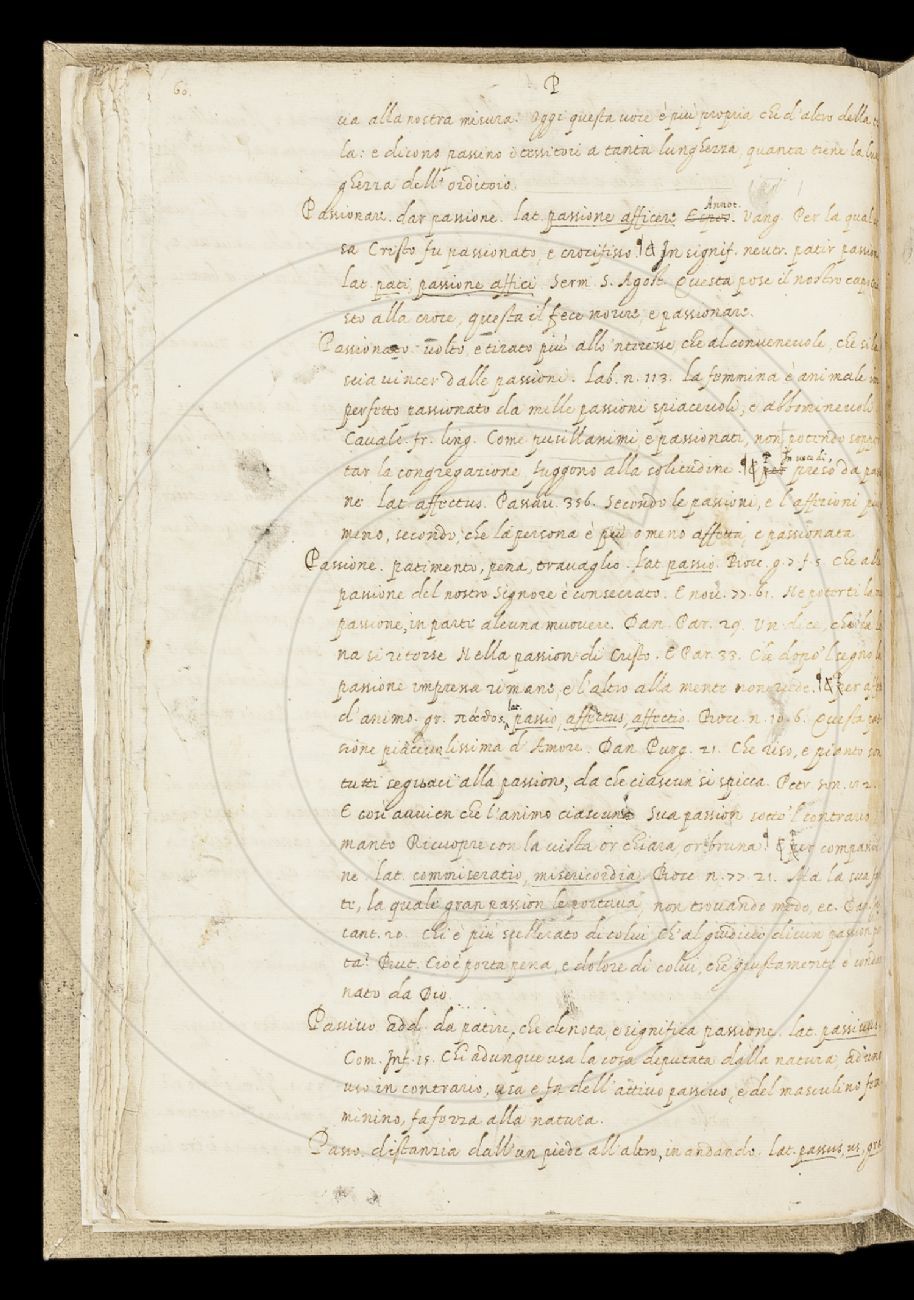 60.
P
ua alla nostra misura. Oggi questa uoce è più propria che d'altro della
la: e dicono passino i tessitori a tanta lunghezza quanta tiene la
ghezza dell'orditoio.
Passionare. dar passione. lat. passione afficere Annot. Vang. Per la qual
sa Cristo fu passionato, e crocifisso. ¶ & In signif. neutr. patir passion
lat. pati, passione affici. Serm. S. Agost. Questa pose il nostro capo
sto alla croce, questa il fece morire, e passionare.
Passionato. uolto, e tirato più allo 'nteresse, che al conueneuole, che si la
scia uincer dalle passioni. Lab. n. 113. La femmina è animale im
perfetto passionato da mille passioni spiaceuoli, e abbomineuoli
Caualc. fr. ling. Come pusillanimi e passionati, non potendo soppor
tar la congregazione fuggono alla solitudine. ¶ & P In uece di preso da pas
ne lat. affectus. Passau. 356. Secondo le passioni, e l'affezioni
meno, secondo, che la persona è più o meno affetta, e passionata
Passione. patimento, pena, trauaglio. lat. passio. Bocc. g. 7. f. 5. Che alla
passione del nostro Signore è consecrato. E nou. 77. 61. Ne poterti la
passione, in parte alcuna muouere. Dan. Par. 29. Un dice, che la lu
na si ritorse Nella passion di Cristo. E Par. 33. Che dopo 'l sogno la
passione impressa rimane, e l'altro alla mente non riede. ¶ & Per affe
d'animo. gr. πάθος, lat. passio, affectus, affectio. Bocc. n. 10. 6. Questa pas
sione piaceuolissima d'Amore. Dan. Purg. 21. Che riso, e pianto son
tutti seguaci alla passione, da che ciascun si spicca. Petr. son.
E così auuien che l'animo ciascuna Sua passion sotto 'l contrario
manto Ricuopre con la uista or chiara or bruna ¶ & Per compassi
ne lat. commiseratio, misericordia. Bocc. n. 77. 21. Ma la sua
te, la quale gran passion le portaua, non trouando modo, ec. Dan.
cant. 20. Chi è più scellerato di colui Ch'al giudicio diuin passion por
ta? But. Cioè porta pena, e dolore di colui, che giustamente è condan
nato da Dio.
Passiuo add. da patire, che denota, e significa passione. lat. passiuus.
Com. Inf. 15. Chi adunque usa la cosa diputata dalla natura, ad uno
uso in contrario, usa e fa dell'attiuo passiuo, e del masculino fem
minino, fa forza alla natura.
Passo. distanzia dall'un piede all'altro, in andando. lat. passus, us,